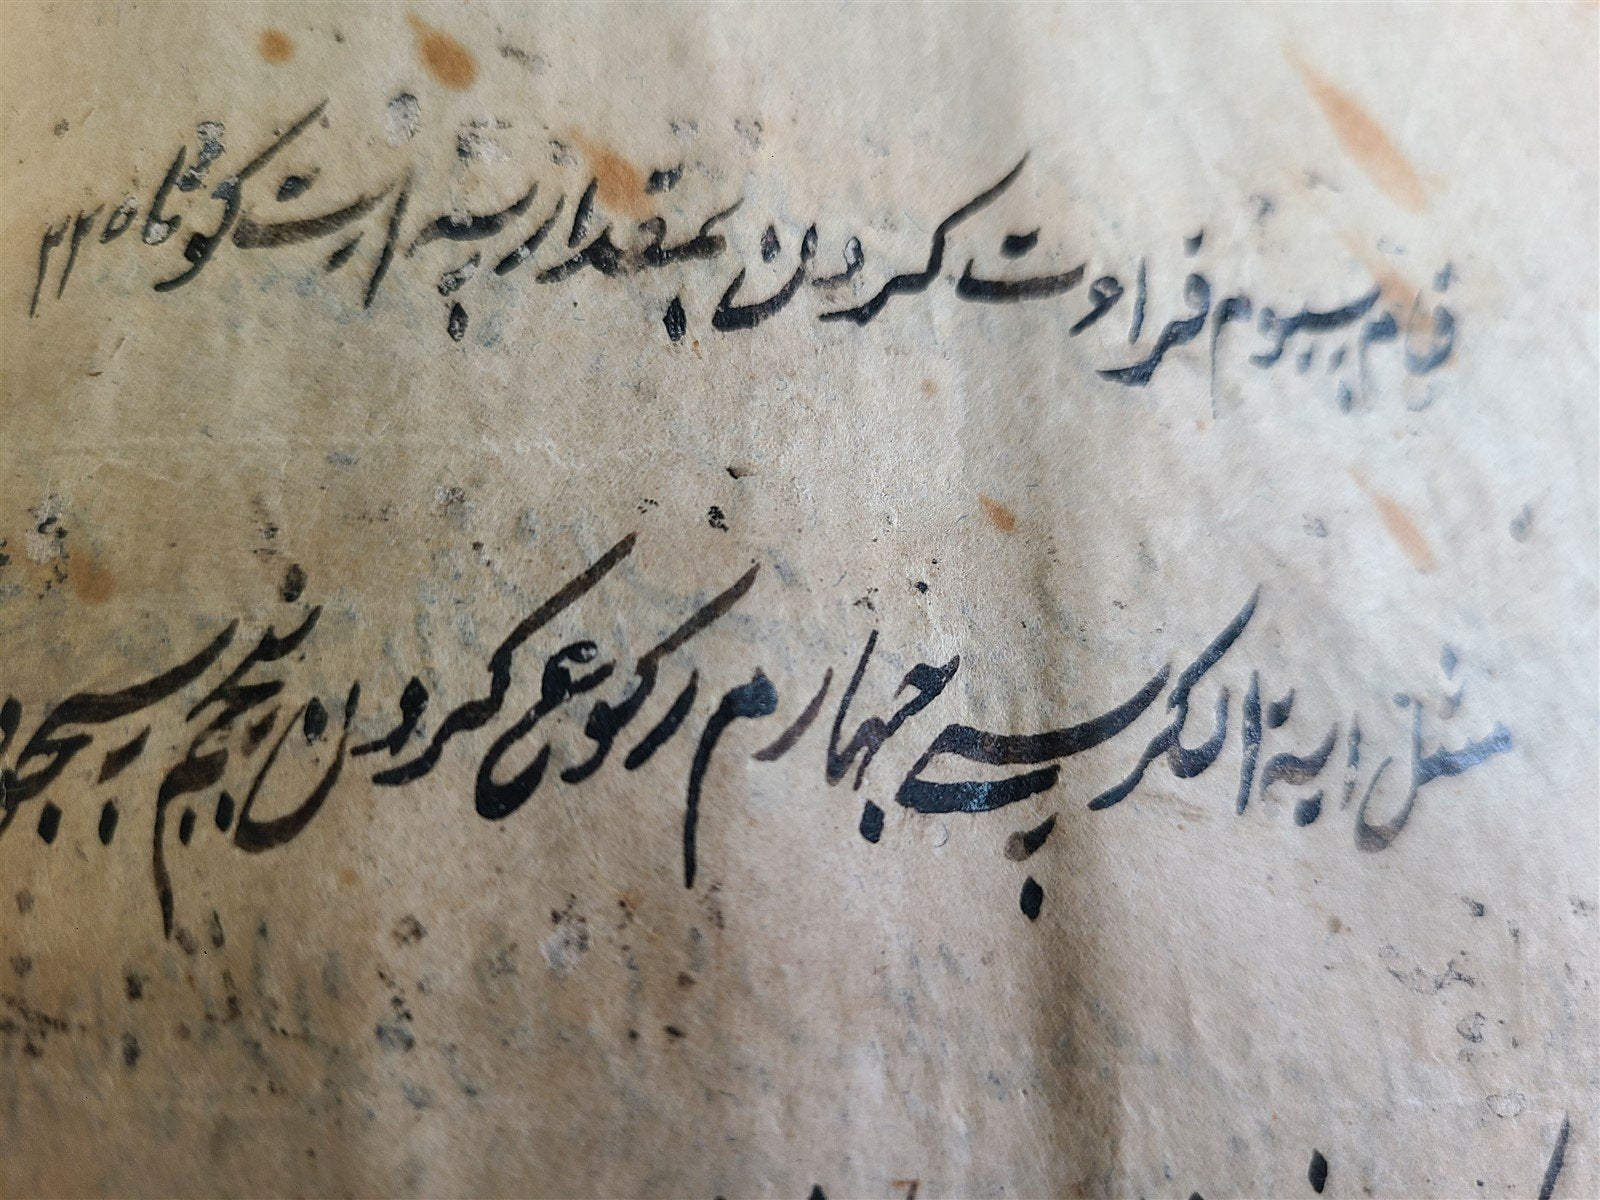 قام سیوم قراءت کردن بمقدار سه ایت کوتاه
مثل ایة الکرسی چهارم رکوع کردن پنجم سجود